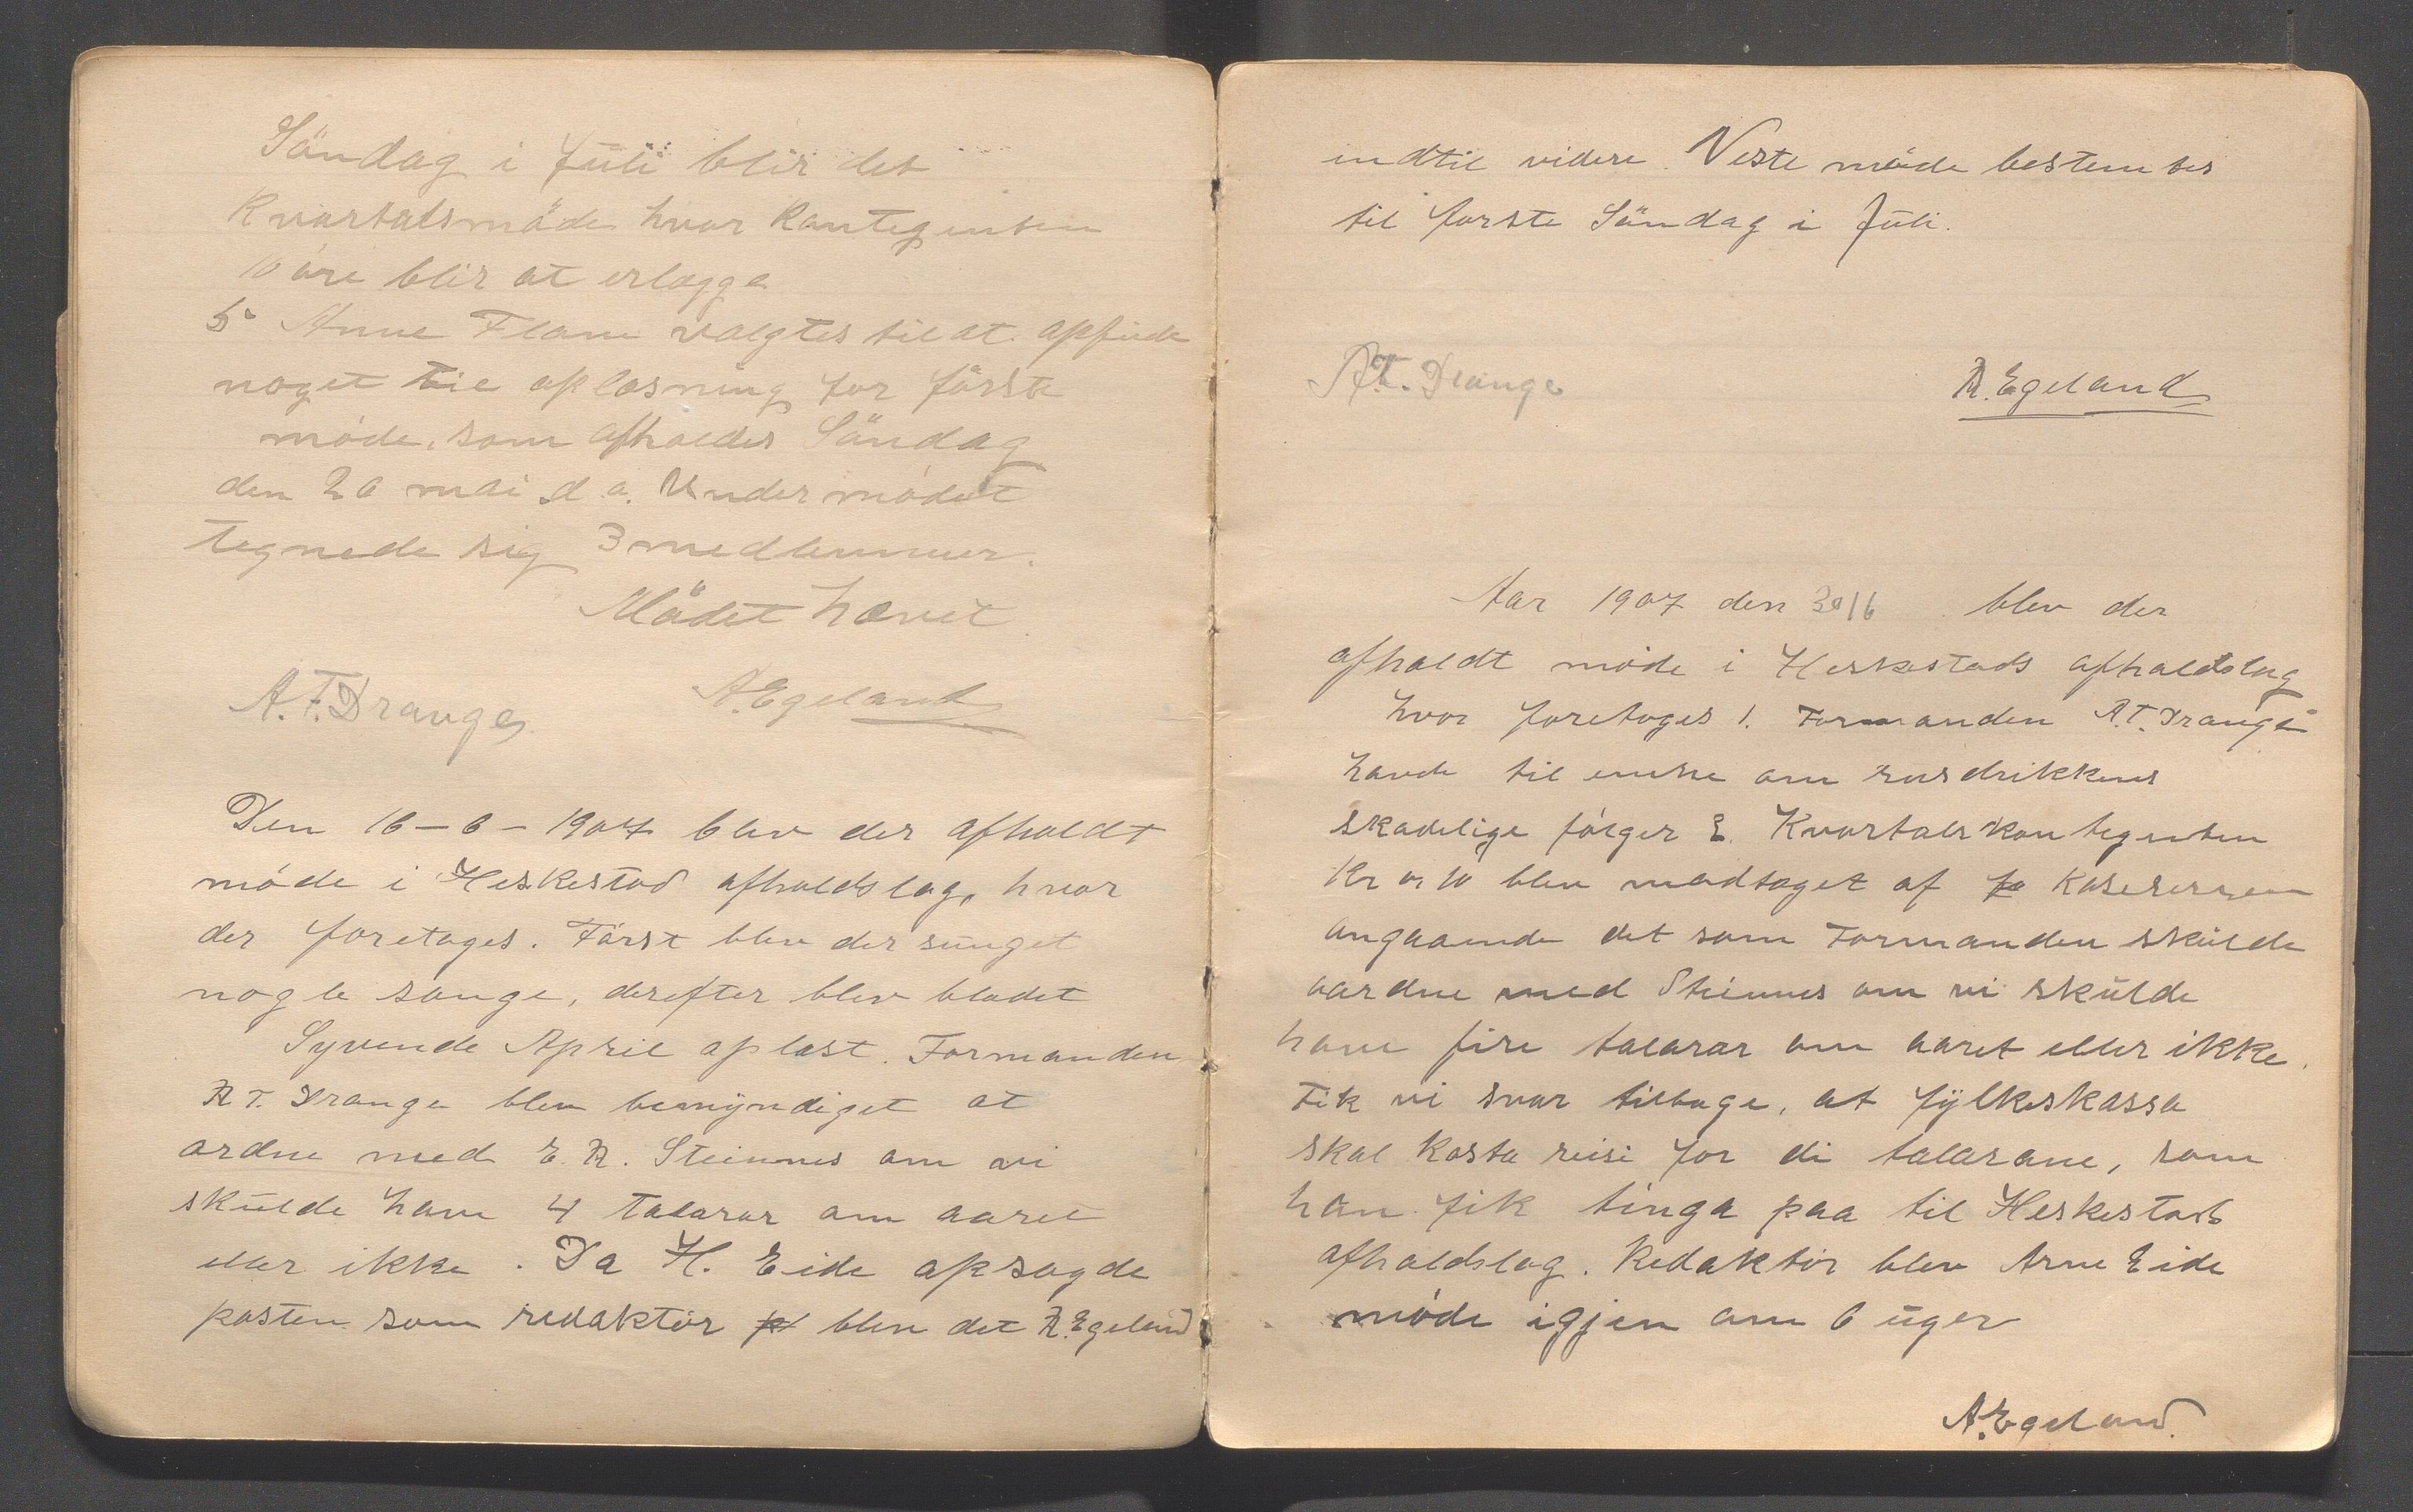 Söndag i Juli blir det
Kvartalsmöde hvor Kontegenten
10 øre blir at erlægge
5 Anne Flane valgtes til at opfinde
noget til oplæsning for förste
möde, som afholdes Söndag
den 26 mai d a. Under mödet
tegnede sig 3 medlemmer.
Mödet hævet
A. T. Drange A. Egeland
Den 16-6-1907 blev der afholdt
möde i Heskestad afholdslag, hvor
der foretoges. Först blev der sunget
nogle sange, derefter blev bladet
Syvende April oplæst. Formanden
A T. Drange blev bemyndiget at
ordne med E. A. Steinnes om vi
skulde have 4 talarar om aaret
eller ikke. Da H. Eide opsagde
posten som redaktör blev det A. Egeland
indtil videre. Neste möde bestemtes
til förste Söndag i Juli.
A. T. Drange A. Egeland
Aar 1907 den 30/6 blev der
afholdt möde i Heskestads afholdslag
hvor foretoges 1. Formanden A. T. Drange
havde til emne om rusdrikkenes
skadelige fölger 2. Kvartalskontegenten
Kr 0,10 blev modtaget af Kassereren
angaaende det som Formanden skulde
aardne med Steinnes om vi skulde
have fire talarar om aaret eller ikke.
Fik vi svar tilbage, at fylkeskassa
skal kosta reisi for di talarane, som
han fik tinga paa til Heskestad
afholdslag. Redaktör blev Arne Eide
möde igjen om 6 uger
A. Egeland.